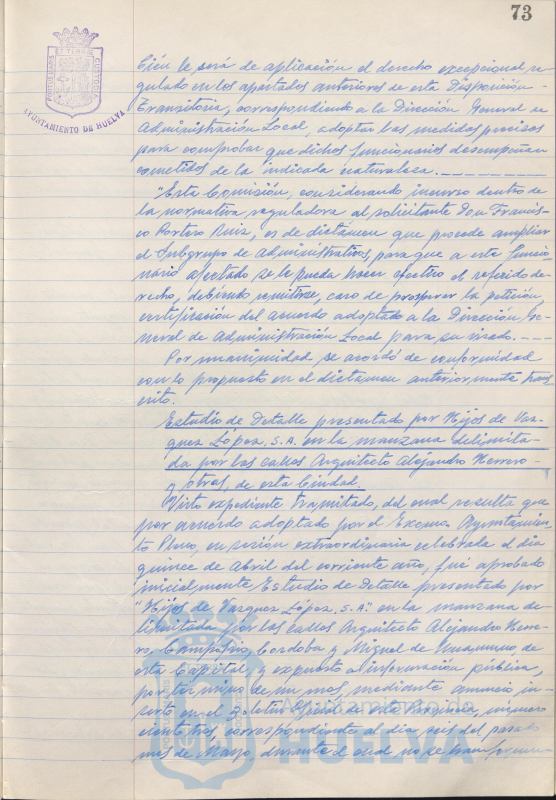 73
PORTUS MARIS ET TERRAE CUSTODIA
AYUNTAMIENTO DE HUELVA
bién le será de aplicación el derecho excepcional re-
gulado en los apartados anteriores de esta Disposición
Transitoria, correspondiendo a la Dirección General de
Administración Local, adoptar las medidas precisas
para comprobar que dichos funcionarios desempeñan
cometidos de la indicada naturaleza.
"Esta Comisión, considerando incurso dentro de
la normativa reguladora al solicitante Don Francis-
co Portero Ruiz, es de dictamen que procede ampliar
el Subgrupo de Administrativos, para que a este funcio-
nario afectado se le pueda hacer efectivo el referido de-
recho, debiendo remitirse, caso de prosperar la petición,
certificación del acuerdo adoptado a la Dirección Ge-
neral de Administración Local para su visado.
Por unanimidad se acordó de conformidad
con lo propuesto en el dictamen anteriormente trans-
crito.
Estudio de Detalle presentado por Hijos de Vaz-
quez López, S.A. en la manzana delimita-
da por las calles Arquitecto Alejandro Herrero
y otras, de esta Ciudad.
Visto expediente tramitado, del cual resulta que
por acuerdo adoptado por el Excmo. Ayuntamien-
to Pleno, en sesión extraordinaria celebrada el dia
quince de Abril del corriente año, fué aprobado
inicialmente Estudio de Detalle presentado por
"Hijos de Vazquez López, S.A." en la manzana de-
limitada por las calles Arquitecto Alejandro Herre-
ro, Campofrio, Cordoba y Miguel de Unamuno, de
esta Capital y expuesto a información pública,
por término de un mes, mediante anuncio in-
serto en el Boletin Oficial de esta Provincia, número
ciento tres, correspondiente al dia seis del pasado
mes de Mayo, durante el cual no se han formu-
Ayuntamiento de
HUELVA